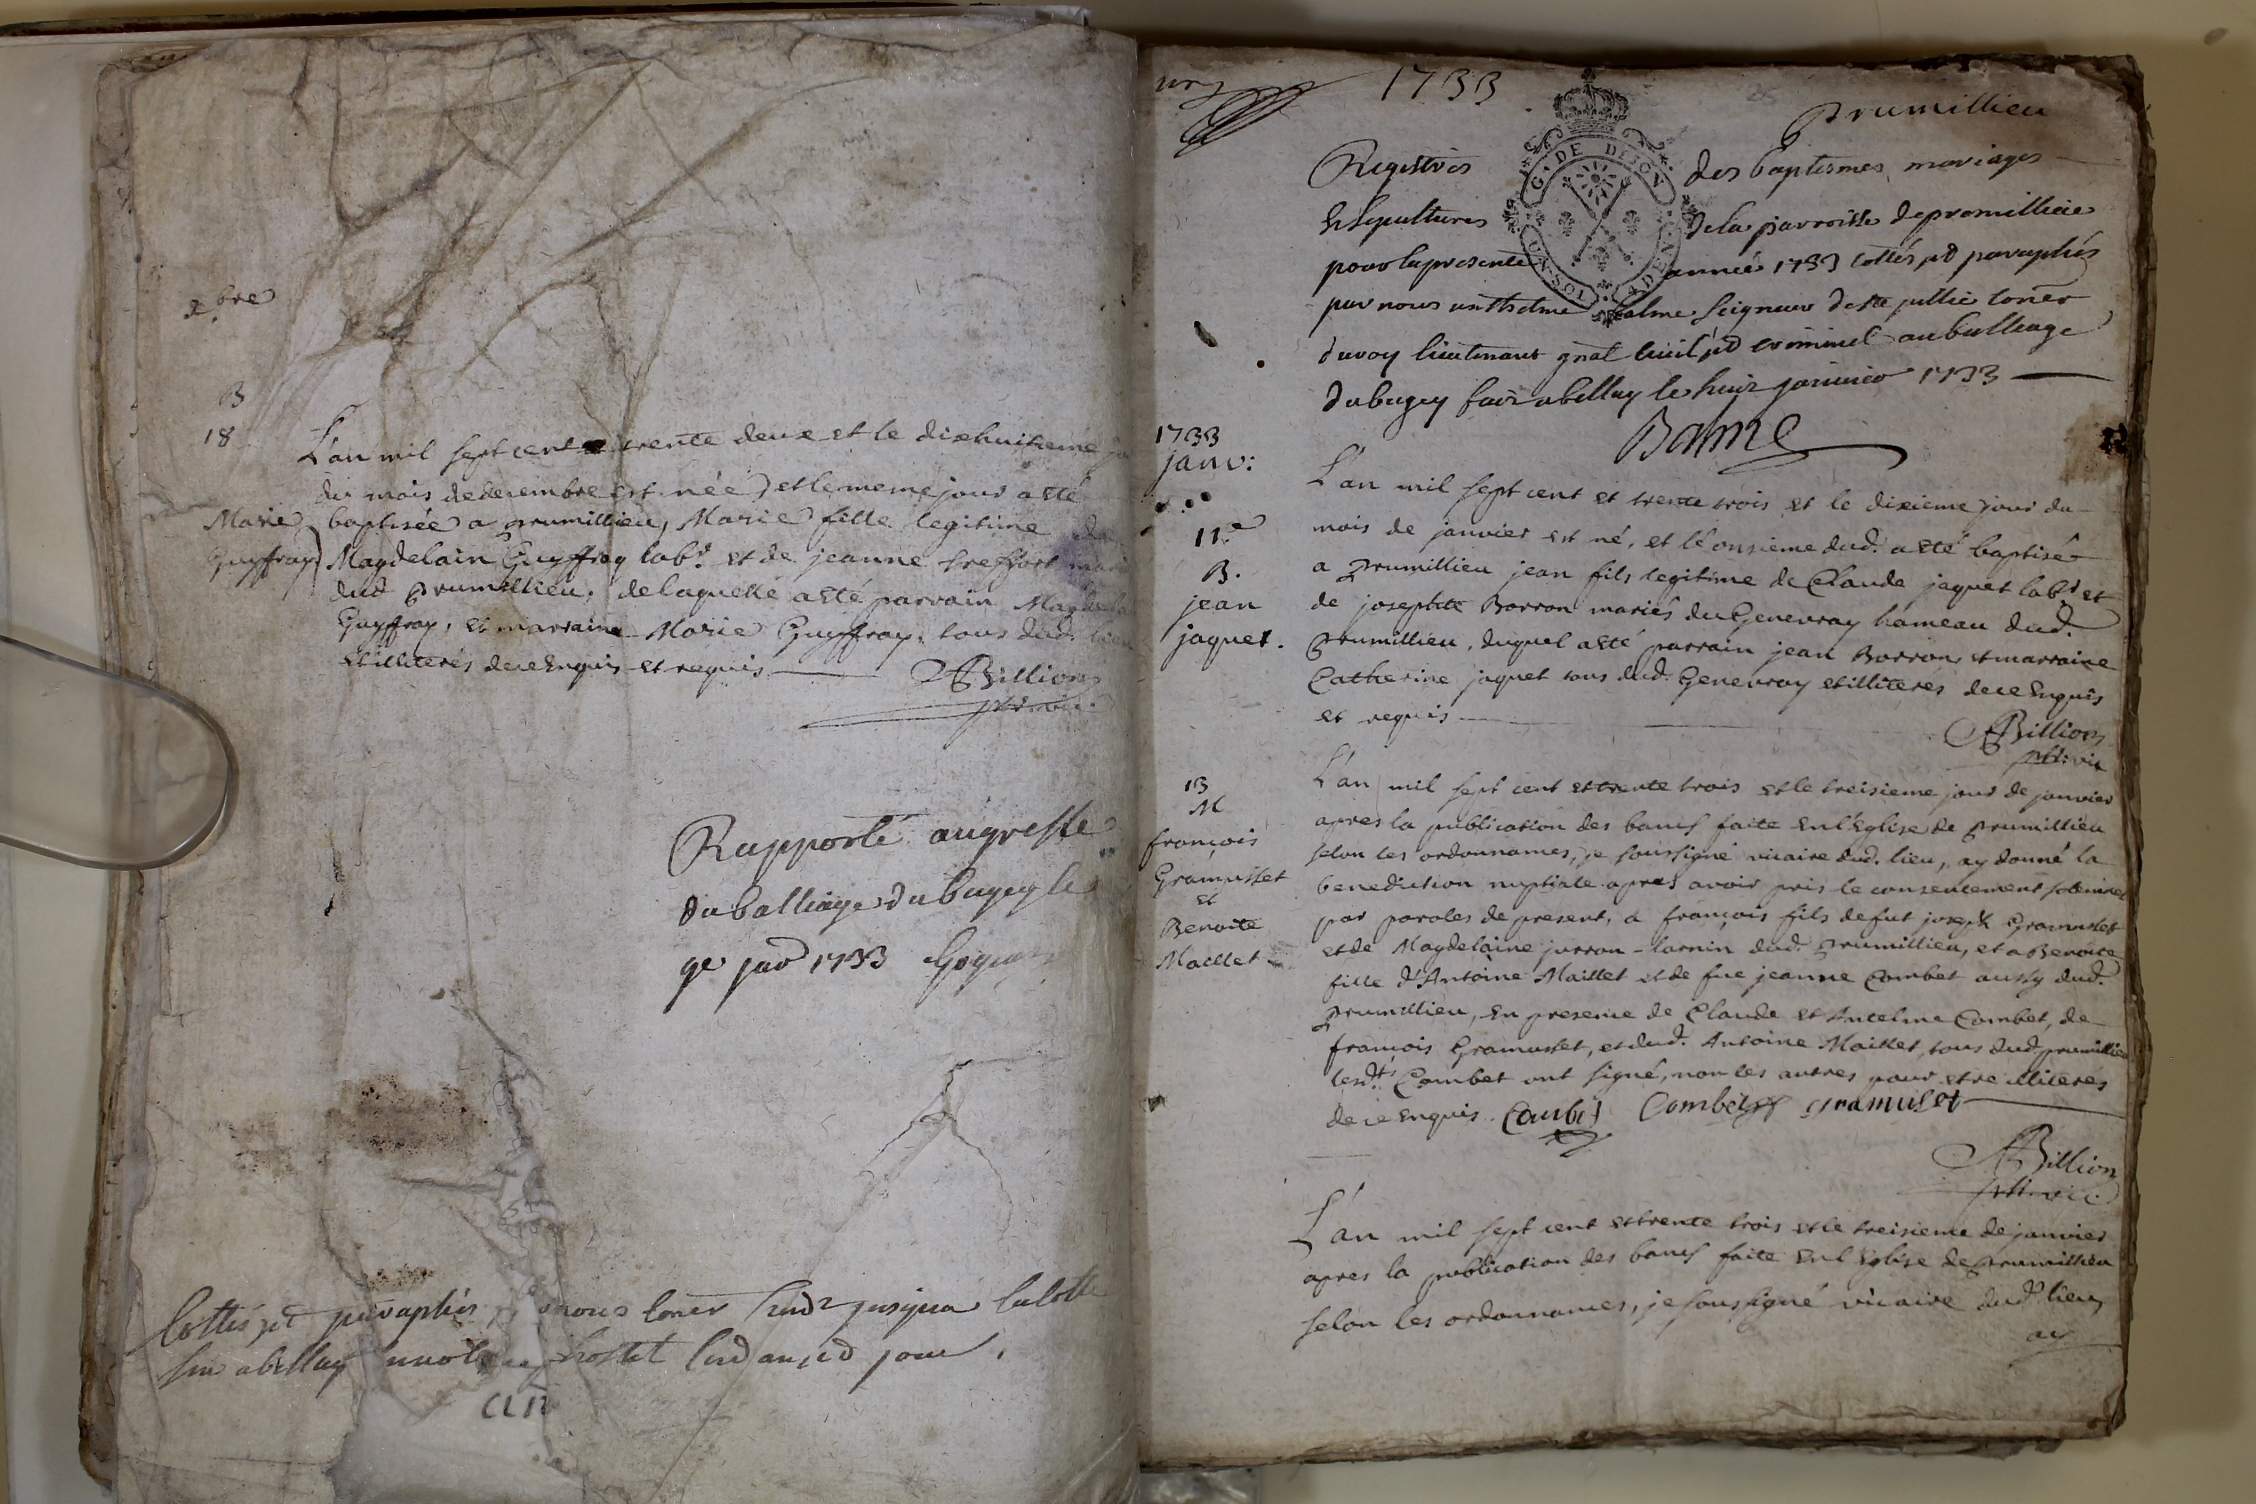 xbre
B
18
L'an mil sept cent trente deux et le dixhuitieme
du mois de decembre est née, et le meme jour a eté
Marie
Guyffray
baptisée a prumillieu, Marie fille legitime de
Magdelain Guyffray labr. et de jeanne treffort
dud prumillieu, de laquelle a eté parrain
Guyffray, et marraine Marie Guyffray, tous dud.
et illiterés de ce enquis et requis
Billion
ptre vic.
Rapporté au greffe
du balliage du bugey le
9e janv 1733
Cottés et paraphés nous
1733
prumillieu
G. DE DIJON
UN SOL
Registres des baptesmes, mariages
et sepultures de la parroisse de promillieu
pour la presente année 1733 cottés et paraphés
par nous anthelme balme seigneur de ste jullie coner
du roy lieutenant gnal civil et criminel au balliage
du bugey fait a bellay le huit janvier 1733
Balme
1733
janv:
11e
B.
jean
jaquet.
L'an mil sept cent et trente trois et le dixieme jour du
mois de janvier est né, et le onsieme dud. a eté baptisé
a prumillieu jean fils legitime de Claude jaquet labr et
de josephte Borron mariés du Genevray hameau dud.
prumillieu, duquel a eté parrain jean Borron, et marraine
Catherine jaquet tous dud. Genevray et illiteres de ce enquis
et requis
Billion
ptre vic
13
M
françois
Gramusset
et
Benoite
Maillet
L'an mil sept cent et trente trois et le treisieme jour de janvier
apres la publication des bancs faite en l'Eglise de prumillieu
selon les ordonnances, je soussigné vicaire dud. lieu, ay donné la
benediction nuptiale apres avoir pris le consentement solemnel
par paroles de present, a françois fils de fut joseph Gramusset
et de Magdelaine dud. prumillieu, et a Benoite
fille d'Antoine Maillet et de fue jeanne Combet aussy dud.
prumillieu, en presence de Claude et Antelme Combet, de
françois Gramusset, et dud. Antoine Maillet, tous dud. prumillieu
lesdts Combet ont signé, non les autres pour etre illiterés
de ce enquis. Combet Combet gramuset
Billion
ptre vic.
L'an mil sept cent et trente trois et le treisieme de janvier
apres la publication des bancs faite en l'Eglise de prumillieu
selon les ordonnances, je soussigné vicaire dud. lieu,
ay